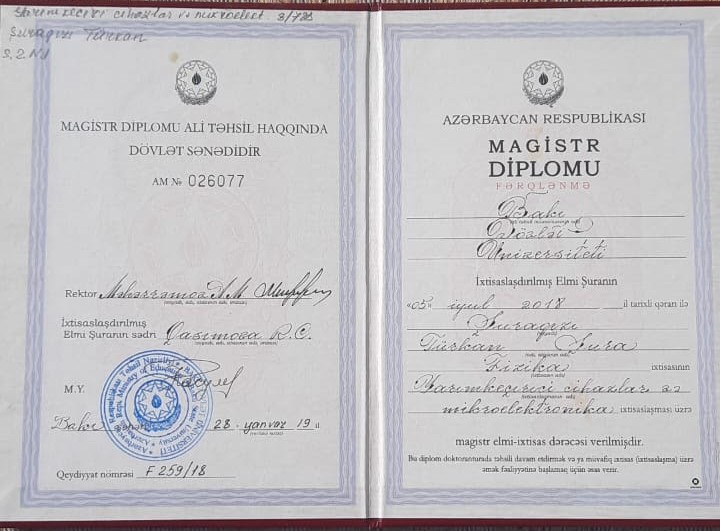 Yarımkeçirici cihazlar və mikroelekt
Şuraqızı Türkan
MAGİSTR DİPLOMU ALİ TƏHSİL HAQQINDA
DÖVLƏT SƏNƏDİDİR
AM № 026077
Rektor Məhərrəmov A.M
İxtisaslaşdırılmış
Elmi Şuranın sədri Qasımova R.C.
M.Y.
Bakı şəhəri 28 yanvar 19 il
Qeydiyyat nömrəsi F 259/18
AZƏRBAYCAN RESPUBLİKASI
MAGİSTR
DİPLOMU
FƏRQLƏNMƏ
Bakı
Dövlət
Universiteti
İxtisaslaşdırılmış Elmi Şuranın
«05» iyul 2018 il tarixli qərarı ilə
Şuraqızı
Türkan Şura
Fizika ixtisasının
Yarımkeçirici cihazlar və
mikroelektronika ixtisaslaşması üzrə
magistr elmi-ixtisas dərəcəsi verilmişdir.
Bu diplom doktoranturada təhsili davam etdirmək və ya müvafiq ixtisas (ixtisaslaşma) üzrə
əmək fəaliyyətinə başlamaq üçün əsas verir.